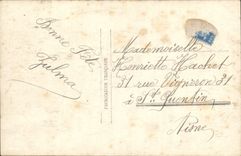 Bonne Fête
Zulma
FABRICATION FRANÇAISE
Mademoiselle
Henriette Hachet
31 rue Vigneron 31
à St Quentin
Aisne